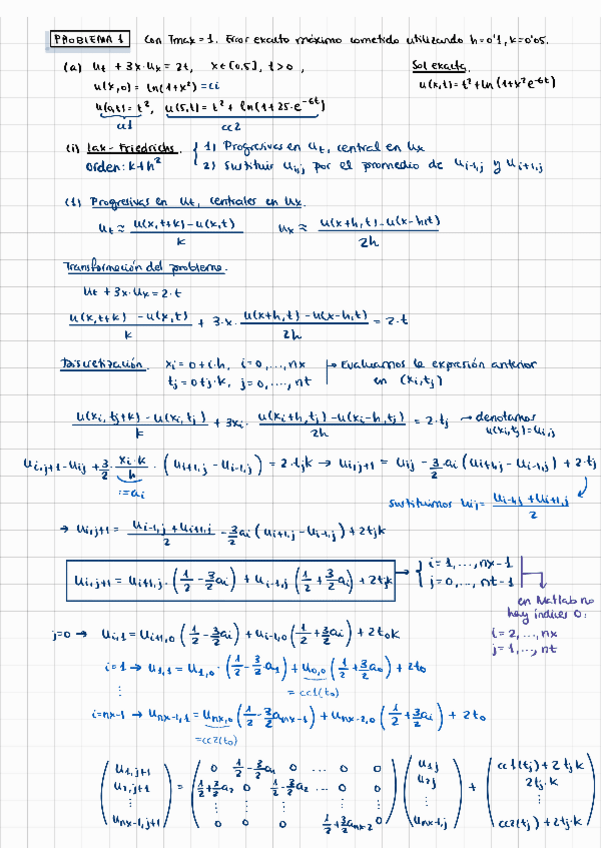 PROBLEMA 1 Con Tmax = 1. Error exacto máximo cometido utilizando h=0'1, k=0'05.
(a) ut + 3x·ux = 2t, x∈[0,5], t>0, Sol exacta.
u(x,0) = ln(1+x²) = ci u(x,t) = t² + ln(1+x²e^-6t)
u(0,t) = t², u(5,t) = t² + ln(1+25·e^-6t)
cc1 cc2
(i) Lax-Friedrichs. { 1) Progresivas en ut, central en ux
Orden: k+h² 2) Sustituir ui,j por el promedio de ui-1,j y ui+1,j
(1) Progresivas en ut, centrales en ux.
ut ≈ (u(x,t+k) - u(x,t))/k ux ≈ (u(x+h,t) - u(x-h,t))/2h
Transformación del problema.
ut + 3x·ux = 2·t
(u(x,t+k) - u(x,t))/k + 3·x·(u(x+h,t) - u(x-h,t))/2h = 2·t
Discretización. xi = 0+i·h, i=0,...,nx → Evaluamos la expresión anterior
tj = 0+j·k, j=0,...,nt en (xi,tj)
(u(xi,tj+k) - u(xi,tj))/k + 3xi·(u(xi+h,tj) - u(xi-h,tj))/2h = 2·tj → denotamos
u(xi,tj) = ui,j
ui,j+1 - uij + 3/2 · xi·k/h · (ui+1,j - ui-1,j) = 2·tjk → ui,j+1 = uij - 3/2 ai (ui+1,j - ui-1,j) + 2·tj
:= ai
sustituimos uij = (ui-1,j + ui+1,j)/2
→ ui,j+1 = (ui-1,j + ui+1,j)/2 - 3/2 ai (ui+1,j - ui-1,j) + 2tjk
ui,j+1 = ui+1,j · (1/2 - 3/2 ai) + ui-1,j (1/2 + 3/2 ai) + 2tjk → { i=1,...,nx-1
j=0,...,nt-1
en Matlab no
hay índices 0:
i=2,...,nx
j=1,...,nt
j=0 → ui,1 = ui+1,0 (1/2 - 3/2 ai) + ui-1,0 (1/2 + 3/2 ai) + 2t0k
i=1 → u1,1 = u1,0 · (1/2 - 3/2 a1) + u0,0 (1/2 + 3/2 a0) + 2t0
= cc1(t0)
⋮
i=nx-1 → unx-1,1 = unx,0 (1/2 - 3/2 anx-1) + unx-2,0 (1/2 + 3/2 ai) + 2t0
=cc2(t0)
(u1,j+1) = (0 1/2 - 3/2 a1 0 0 ... 0 0) (u1j) + (cc1(tj) + 2tjk)
(u2,j+1) (1/2 + 3/2 a2 0 1/2 - 3/2 a2 ... 0 0) (u2j) (2tj·k)
⋮ ⋮ ⋮ ⋮ ⋮ ⋮ ⋮
(unx-1,j+1) (0 0 0 1/2 + 3/2 anx-2 0) (unx-1,j) (cc2(tj) + 2tj·k)